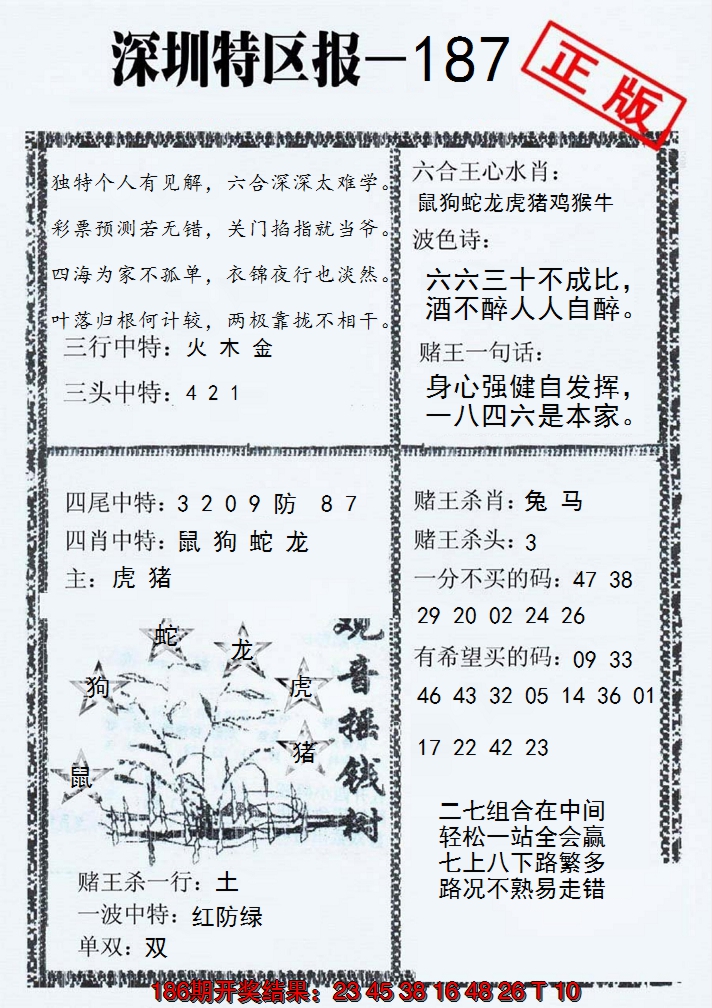 深圳特区报—187
正版
独特个人有见解，六合深深太难学。
彩票预测若无错，关门掐指就当爷。
四海为家不孤单，衣锦夜行也淡然。
叶落归根何计较，两极靠拢不相干。
三行中特：火 木 金
三头中特：4 2 1
六合王心水肖：
鼠狗蛇龙虎猪鸡猴牛
波色诗：
六六三十不成比，
酒不醉人人自醉。
赌王一句话：
身心强健自发挥，
一八四六是本家。
四尾中特：3 2 0 9 防 8 7
四肖中特：鼠 狗 蛇 龙
主：虎 猪
蛇
龙
狗
虎
猪
鼠
观音摇钱树
赌王杀一行：土
一波中特：红防绿
单双：双
赌王杀肖：兔 马
赌王杀头：3
一分不买的码：47 38
29 20 02 24 26
有希望买的码：09 33
46 43 32 05 14 36 01
17 22 42 23
二七组合在中间
轻松一站全会赢
七上八下路繁多
路况不熟易走错
186期开奖结果：23 45 38 16 48 26 T 10